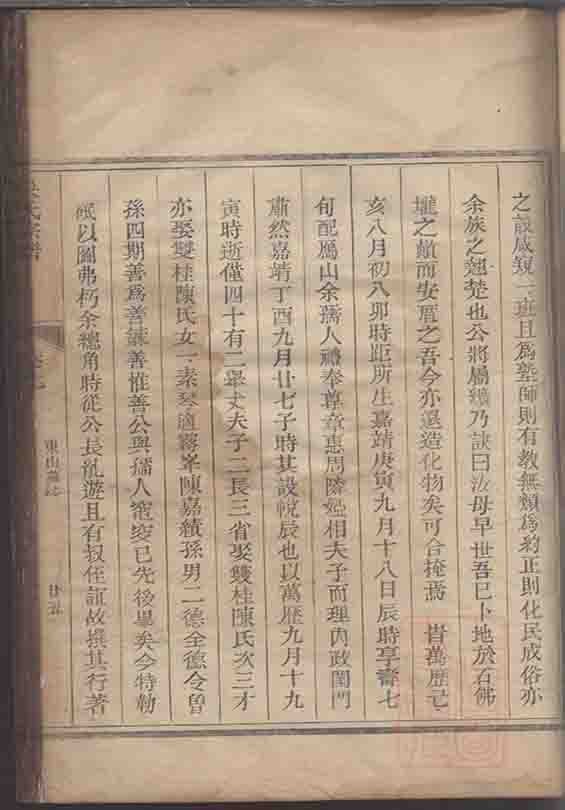 之設咸窺一班且為塾師則有教無類為約正則化民成俗亦
余族之翹楚也公將屬纊乃訣曰汝母早世吾已卜地於石佛
壠之巔而安厝之吾今亦還造化物矣可合掩焉 旹萬歷己
亥八月初八卯時距所生嘉靖庚寅九月十八日辰時享壽七
旬配鳳山余孺人禱奉尊章惠周隣婭相夫子而理內政閨門
肅然嘉靖丁酉九月廿七子時其設帨辰也以萬歷九月十九
寅時逝僅四十有二舉丈夫子二長三省娶雙桂陳氏次三才
亦娶雙桂陳氏女一素琴適霧峯陳嘉績孫男二德全德令曾
孫四期善為善誠善惟善公與孺人窀穸已先後畢矣今特勒
珉以圖弗朽余總角時從公長胤遊且有叔侄誼故撰其行著
氏宗譜
東山
廿五